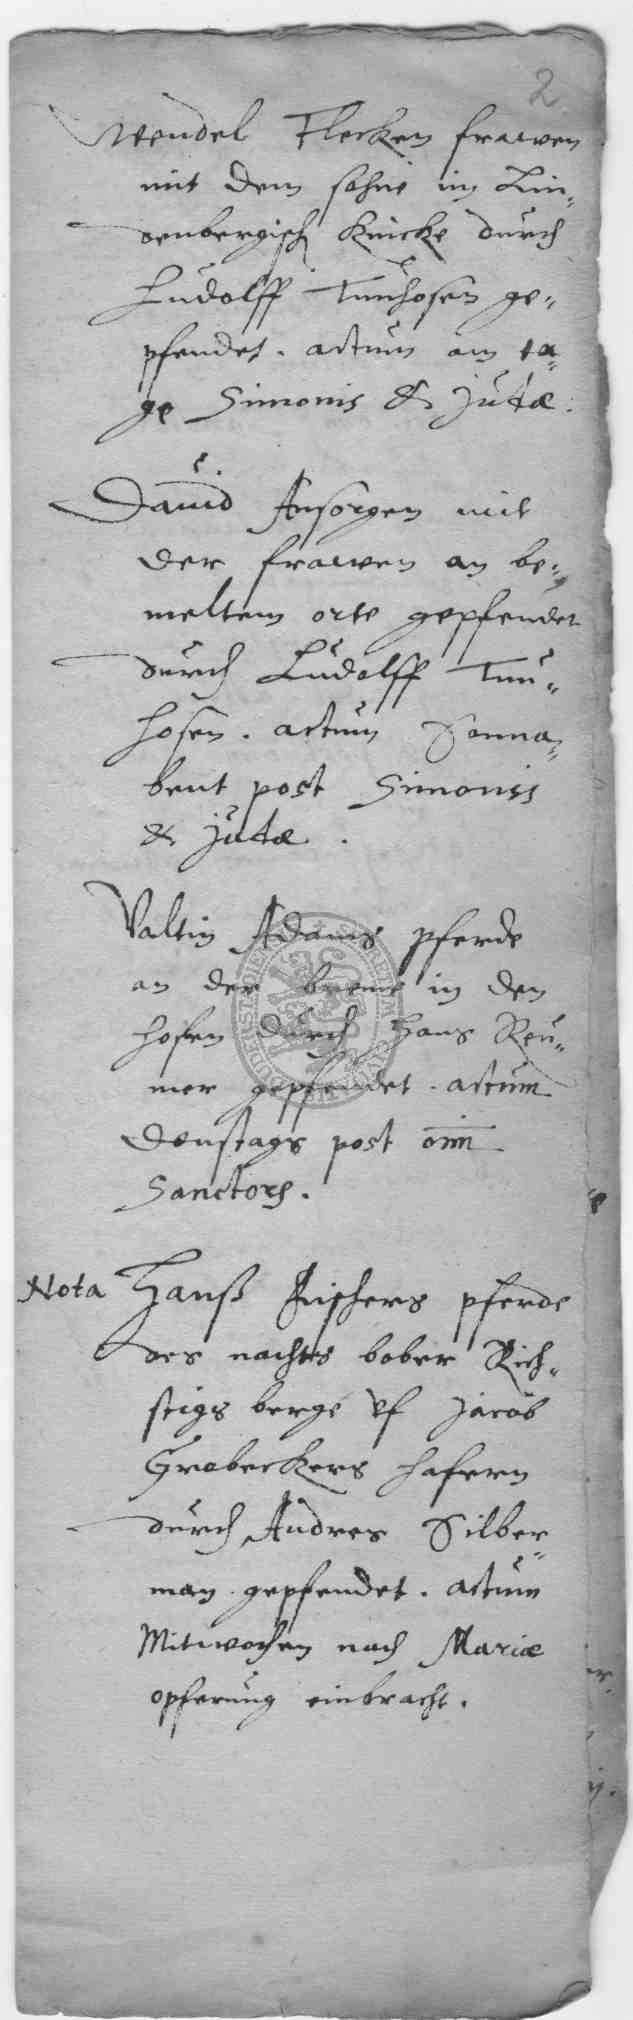 2
Wendel Flecken frawen
mit dem sohne im Lin„
denbergisch Knicke durch
Ludolff Tunhosen ge„
pfendet. actum am ta„
ge Simonis & Judæ.
Dauid Ansorgen mit
der frawen an be„
meltem orte gepfendet
durch Ludolff Tun„
hosen. actum Sonna„
bent post Simonis
& Judæ.
Valtin Adams pferde
an der breme in den
hofen durch Hans Reu„
mer gepfendet. actum
Denstags post om̄
Sanctor.
Nota Hanß Fischers pferde
des nachts bober Rich„
stigs berge vf Jacob
Grobeckers hafern
durch Andres Silber„
man gepfendet. actum
Mitwochen nach Mariæ
opferung einbracht.